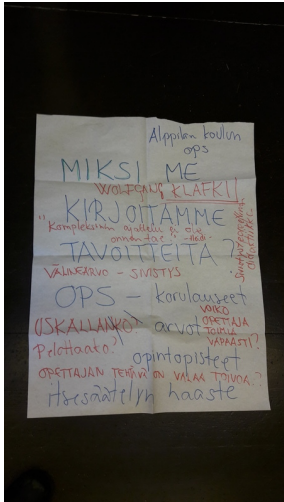 Alppilan koulun
ops
MIKSI ME
WOLFGANG KLAFKI!
KIRJOITAMME
"Kompleksinen ajattelu ei ole
onnentae"
TAVOITTEITA?
VÄLINEARVO - SIVISTYS
OPS - korulauseet
USKALLANKO?
arvot
VOIKO
OPETTAJA
TOIMIA
VAPAASTI?
Pelottaako?
opintopisteet
OPETTAJAN TEHTÄVÄ ON VALAA TOIVOA?
Itsesäätelyn haaste